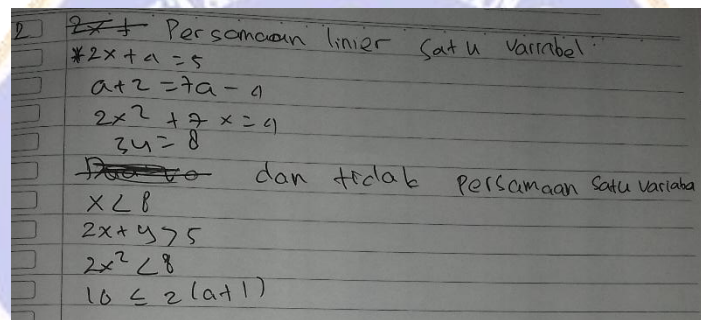 2 Persamaan linier satu variabel
*2x + 4 = 5
a + 2 = 7a - 4
2x² + 7x = 4
3y = 8
dan tidak persamaan satu variaba
x < 8
2x + y > 5
2x² < 8
10 ≤ 2(a+1)